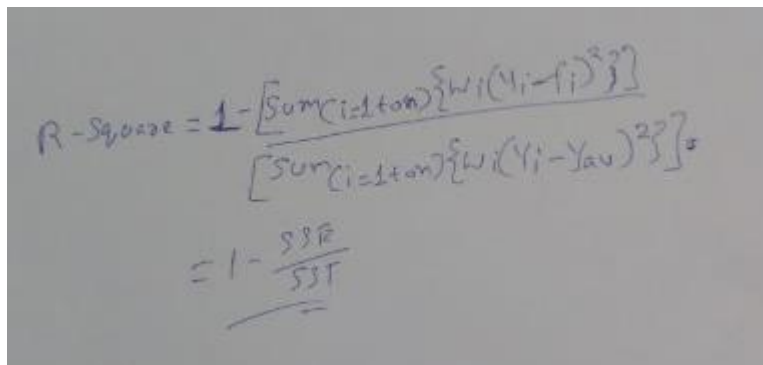 R-Square = 1 - [Sum(i=1 to n){wi(yi-fi)²}]
[Sum(i=1 to n){wi(yi-yav)²}].
= 1 - SSE
SST